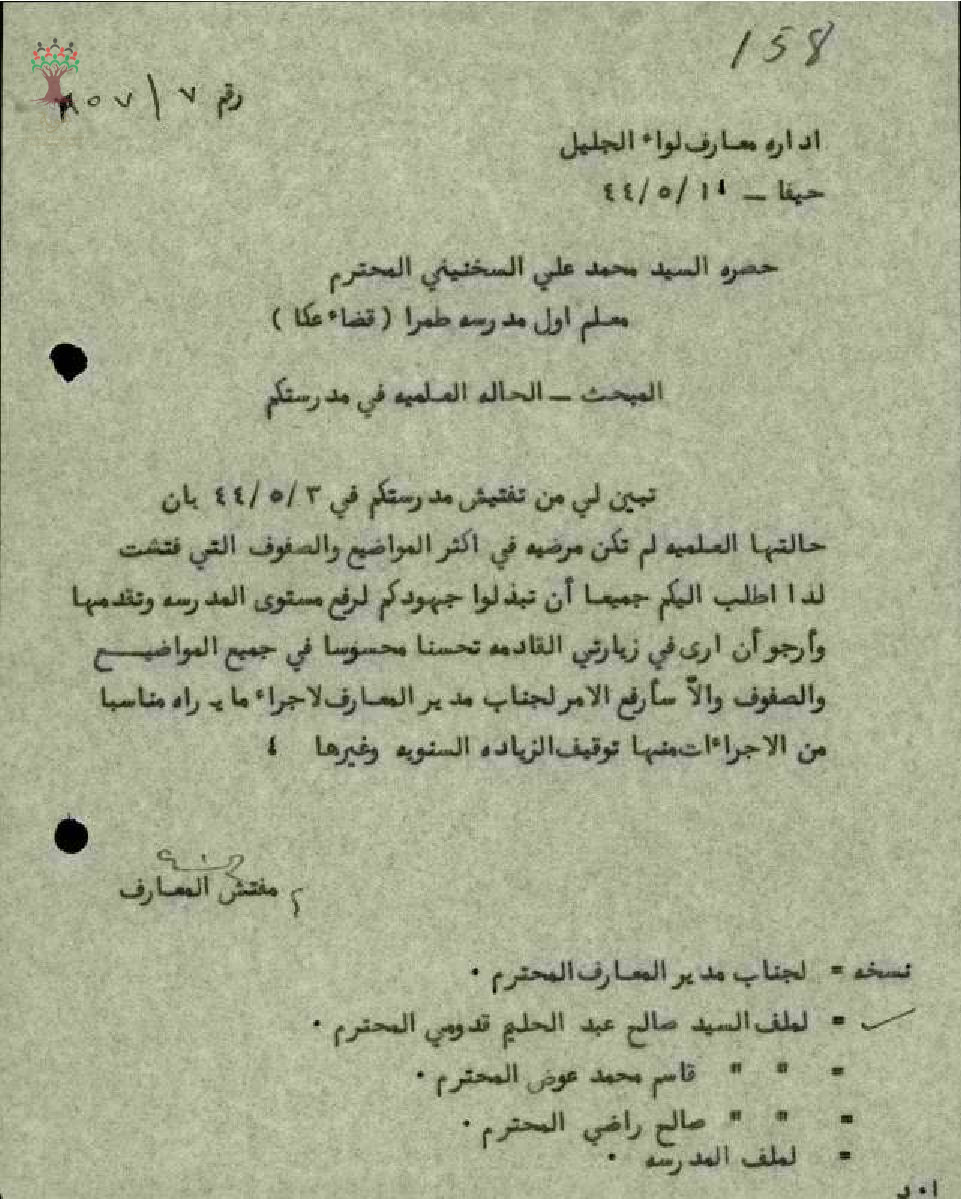 158
رقم ٧ / ٨٥٧
اداره معارف لواء الجليل
حيفا — ١٤ /٥ /٤٤
حضره السيد محمد علي السختيني المحترم
معلم اول مدرسه طمرا ( قضاء عكا )
المبحث — الحاله العلميه في مدرستكم
تبين لي من تفتيش مدرستكم في ٣ /٥ /٤٤ بان
حالتها العلميه لم تكن مرضيه في اكثر المواضيع والصفوف التي فتشت
لذا اطلب اليكم جميعا أن تبذلوا جهودكم لرفع مستوى المدرسه وتقدمها
وأرجو أن ارى في زيارتي القادمه تحسنا محسوسا في جميع المواضيـــع
والصفوف والاّ سأرفع الامر لجناب مدير المعارف لاجراء ما يراه مناسبا
من الاجراءات منها توقيف الزياده السنويه وغيرها
مفتش المعارف
نسخه = لجناب مدير المعارف المحترم ٠
= لملف السيد صالح عبد الحليم قدومي المحترم ٠
= " " قاسم محمد عوض المحترم ٠
= " " صالح راضي المحترم ٠
= لملف المدرسه ٠